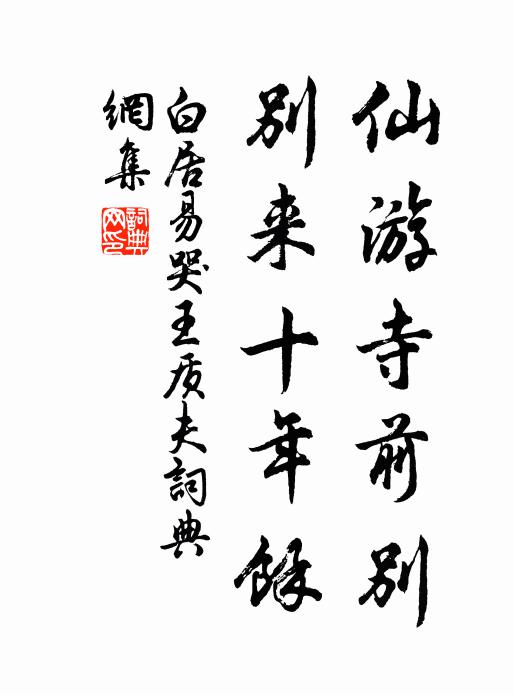 仙游寺前别
别来十年餘
白居易哭王质夫詞典
網集
詞典
网印